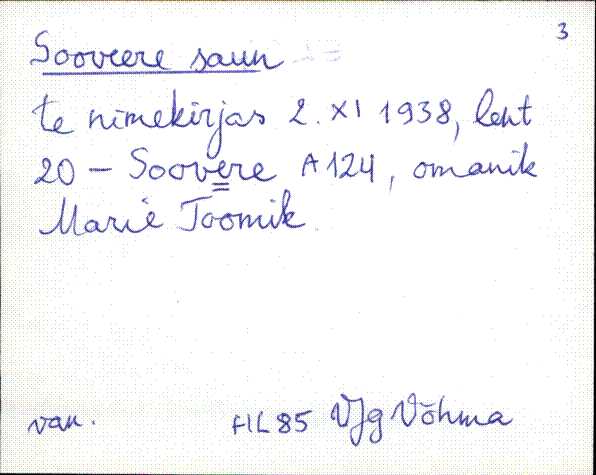 3
Sooveere saun
te nimekirjas 2. XI 1938, leht
20 – Soovere A 124, omanik
Marie Toomik
van. HL 85 VJg Võhma